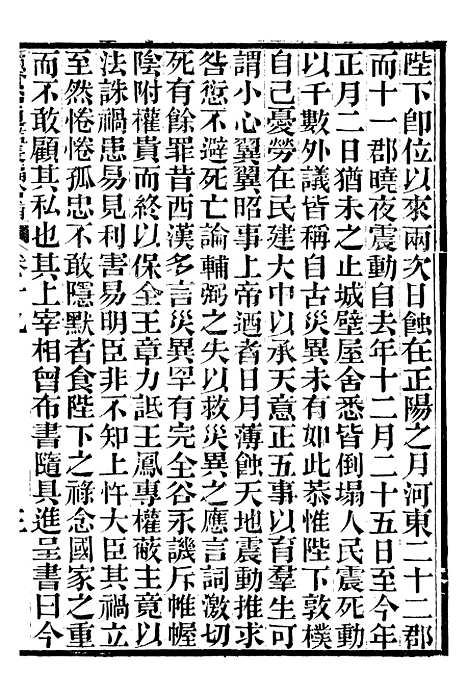 陛下卽位以來兩次日蝕在正陽之月河東二十二郡
而十一郡曉夜震動自去年十二月二十五日至今年
正月二日猶未之止城壁屋舍悉皆倒塌人民震死動
以千數外議皆稱自古災異未有如此恭惟陛下敦樸
自己憂勞在民建大中以承天意正五事以育羣生可
謂小心翼翼昭事上帝迺者日月薄蝕天地震動推求
咎愆不避死亡論輔弼之失以救災異之應言詞激切
死有餘罪昔西漢多言災異罕有完全谷永譏斥帷幄
陰附權貴而終以保全王章力詆王鳳專權蔽主竟以
法誅禍患易見利害易明臣非不知上忤大臣其禍立
至然惓惓孤忠不敢隱默者食陛下之祿念國家之重
而不敢顧其私也其上宰相曾布書隨具進呈書曰今